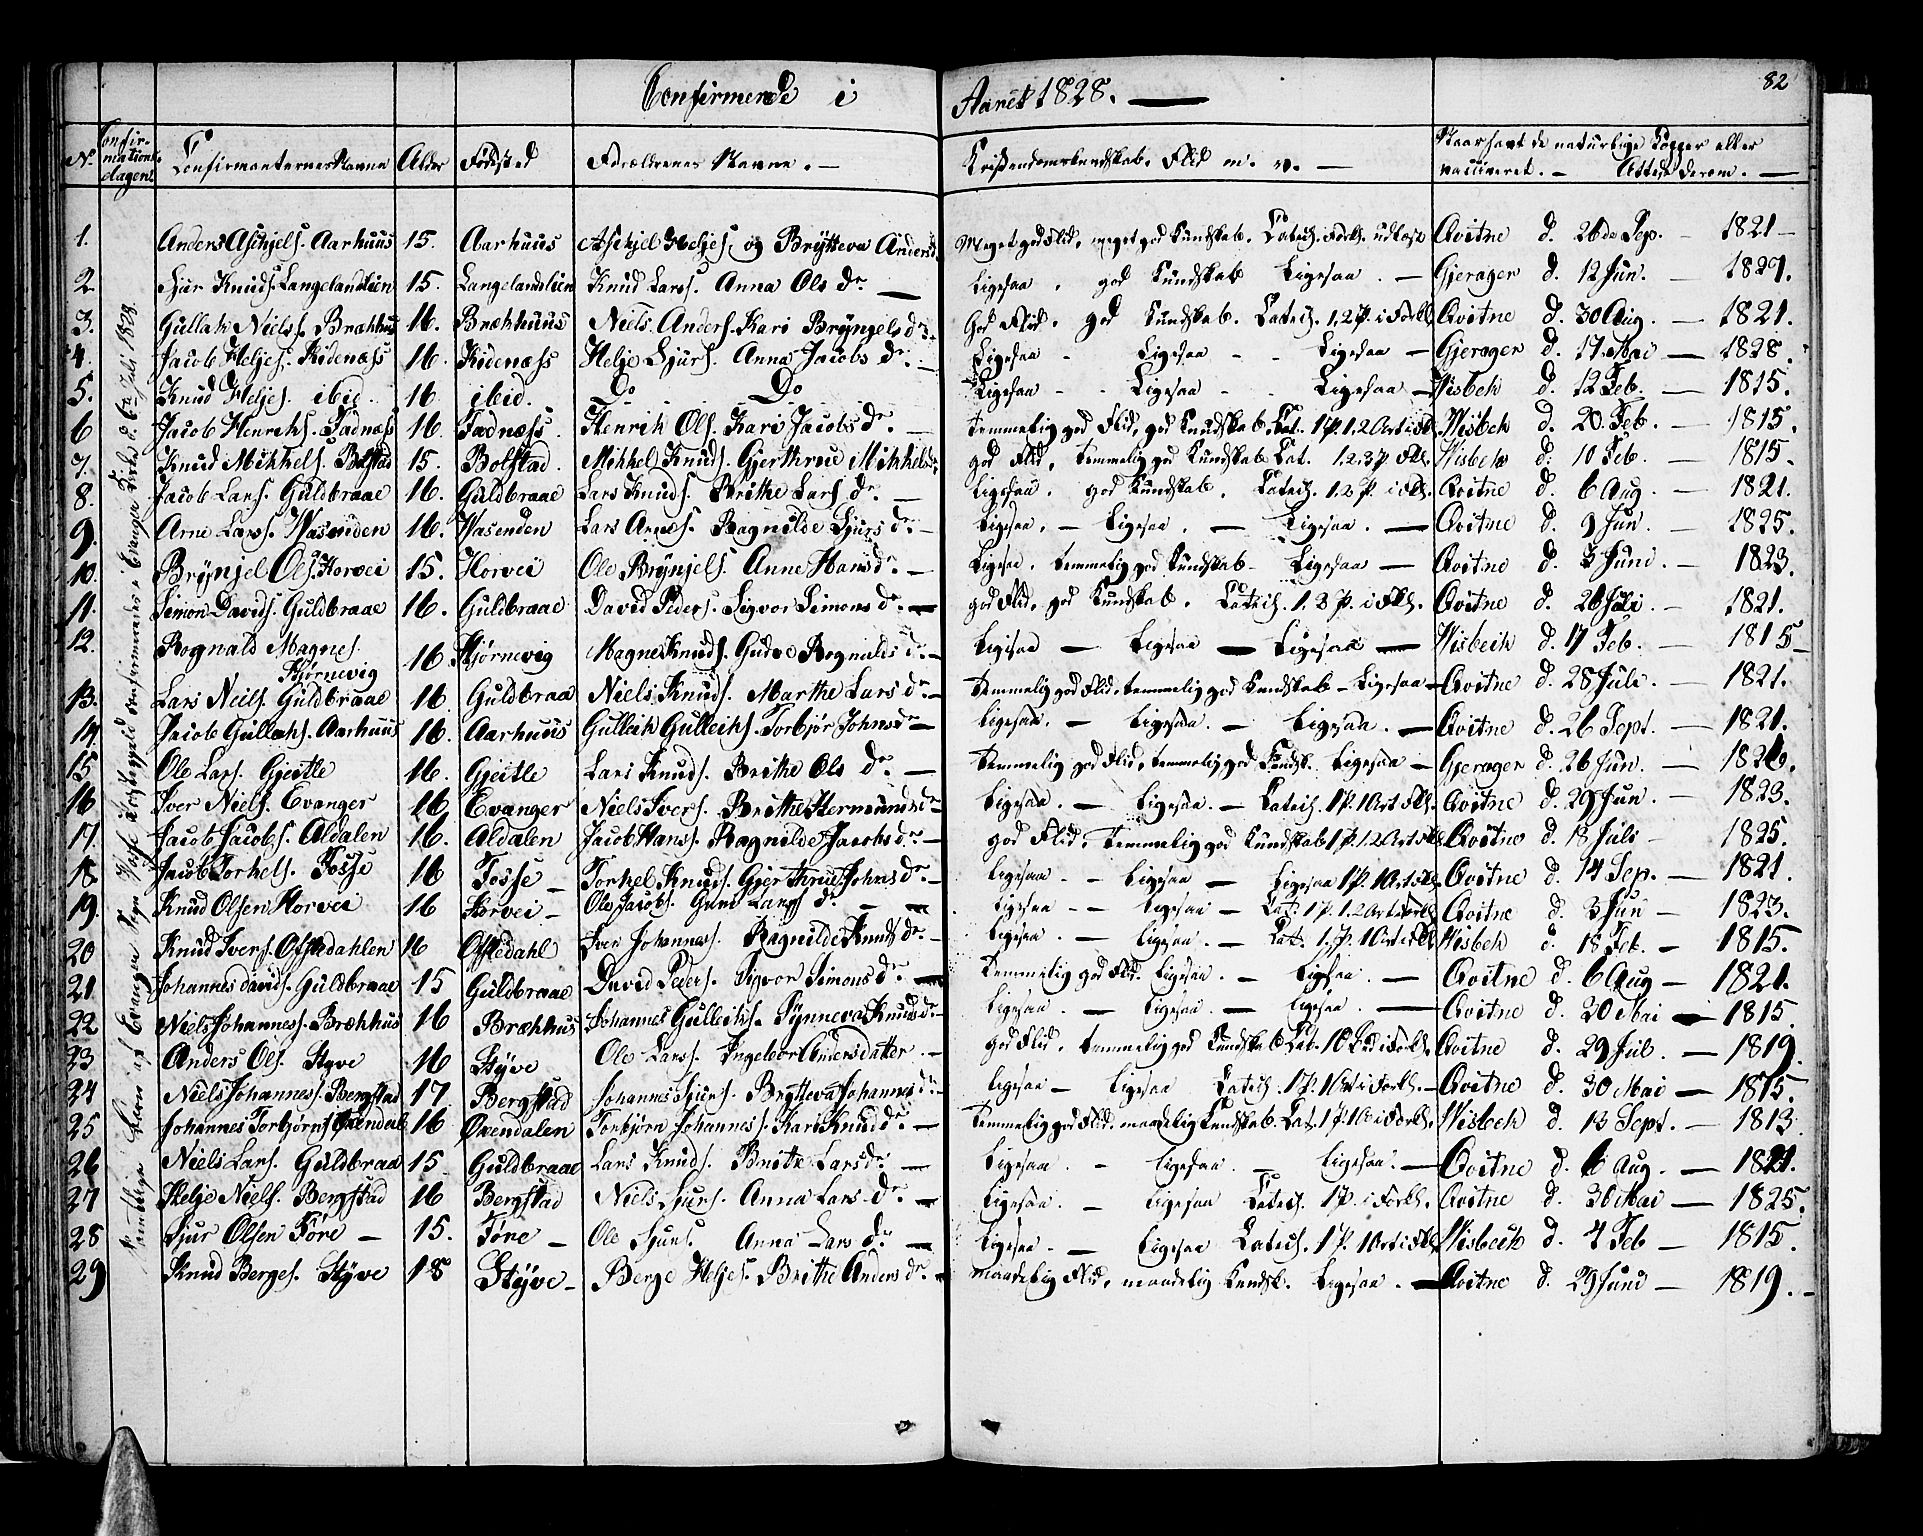 82
Confirmerede i Aaret 1828. —
No Confirmationsdagen. Confirmanternes Navne Alder Födested Forældrenes Navne. — Kristendomskundskab, Flid m. v. — Naar havt de naturlige Kopper eller vaccineret. — Attest derom. —
Samtlige Börn af Evanger Sogn Vosse Præstegjeld confirmerede i Evanger Kirke d. 6te Juli 1828.
1. Anders Aschjels. Aarhuus 15. Aarhuus Aschjel Heljes. og Brÿtteva Andersd. Meget god Flid, meget god Kundskab. Catech. i Forkl. udlæst Qvitne d. 26de Sep. — 1821 —
2. Sjur Knuds. Langelandslien 15. Langelandslien Knud Lars. Anna Ols dr. — Ligesaa, god Kundskab Ligesaa. — Gjerager d. 12 Jun. — 1827.
3. Gullak Niels. Brækhus 16. Brækhuus Niels Anders. Kari Brÿngels dr. God Flid, god Kundskab. Catech. 1.2 P. i Forkl. Qvitne d. 30 Aug. — 1821.
4. Jacob Heljes. Kidenæss 16. Kidenæss Helje Sjurs. Anna Jacobs dr. — Ligesaa - Ligesaa - - Ligesaa — Gjerager d. 17 Mai — 1828.
5. Knud Heljes. ibid. 16 ibid. Do Do Ligesaa - - Ligesaa - - Ligesaa — Wisbek d. 12 Feb. — 1815.
6 Jacob Henriks. Fadnæss 16. Fadnæss. Henrik Ols. Kari Jacobs dr. — temmelig god Flid, god Kundskab. Cat. 1 P. 1.2 Art i Fkl. Wisbek d. 20 Feb. — 1815.
7. Knud Mikkels. Bolstad 15. Bolstad. Mikkel Knuds. Gjerthrue Mikkelsdr. god Flid, temmelig god Kundskab Cat. 1.2.3 P Fkl. Wisbek d. 10 Feb. — 1815.
8. Jacob Lars. Guldbraae 16. Guldbraae Lars Knuds. Brithe Lars dr. — Ligesaa. god Kundskab. Catech. 1.2 P. i Fkl. Qvitne d. 6 Aug. — 1821.
9. Arne Lars. Wasenden 16. Wasenden Lars Arnes. Ragnilde Sjurs dr. — Ligesaa. — Ligesaa. — Ligesaa. — Qvitne d. 9 Jun. — 1825.
10. Brÿnjel Ols. Horvei 15. Horvei Ole Brÿnjels. Anne Hans dr. — Ligesaa. temmelig god Kundskab — Ligesaa — Qvitne d. 3 Juni — 1823.
11. Simon Davids. Guldbraae 16. Guldbraae David Peders. Sigvor Simons dr. — god Flid, god Kundskab. Catech. 1.2 P. i Fkl. Qvitne d. 26 Juli — 1821.
12. Rognald Magnes. Kjørnevig 16. Kjørnevig Magne Knuds. Gudve Rognalds dr. — Ligesaa — Ligesaa — Ligesaa — Wisbeck d. 17 Feb. — 1815 —
13. Lars Neils. Guldbraae 16. Guldbraa Niels Knuds. Marthe Lars dr. — temmelig god Flid, temmelig god Kundskab — Ligesaa — Qvitne d. 28 Juli — 1821.
14 Jacob Gullaks. Aarhuus 16. Aarhuus Gulleik Gulleiks. Torbjør Johnsdr. — Ligesaa. — Ligesaa — Ligesaa. — Qvitne d. 26 Sept. — 1821.
15 Ole Lars. Gjeitle 16. Gjeitle Lars Knuds. Brithe Ols dr. — temmelig god Flid, temmelig god Kundsk. Ligesaa — Gjerager d. 26 Jun. —
16 Iver Niels. Evanger 16 Evanger Niels Ivers. Brithe Hermunds dr. — Ligesaa. — Ligesaa. — Catech. 1 P. 1 Art i Fkl. Qvitne d. 29 Jun — 1823.
17. Jacob Jacobs. Aldalen 16. Aldalen Jacob Hans. Ragnilde Jacobs dr. — god Flid, temmelig god Kundskab 1 P. 1.2 Art i Fkl. Qvitne d. 18 Juli — 1825.
18. Jacob Torkels. Fosse 16 Fosse — Torkel Knuds. Gjerthrue Johns dr. — Ligesaa — Ligesaa — Ligesaa 1 P. 1 Art i Fkl. Qvitne d. 14 Sep. — 1821.
19. Knud Olsen Horvei 16 Horvei — Ole Jacobs. Guro Lars dr. — Ligesaa — Ligesaa — Cat. 1 P. 1.2 Art i Forkl. Qvitne d. 3 Jun — 1823.
20 Knud Ivers. Offstedahlen 16 Offstedahl Iver Johannes. Ragnilde Knuds dr. — Ligesaa. — Ligesaa. — Cat. 1 P. 1 Art i Fkl. Wisbek d. 18 Feb. — 1815.
21. Johannes Davids. Guldbraae 15 Guldbraae David Peders. Sigvor Simons dr. — temmelig god Flid. Ligesaa. — Ligesaa. — Qvitne d. 6 Aug — 1821.
22 Niels Johannes. Brækhus 16 Brækhus Johannes Gulleiks. Sÿnneva Knuds dr. — Ligesaa. — Ligesaa. — Ligesaa — Qvitne d. 20 Mai — 1815.
23 Anders Ols. Styve 16 Stÿve Ole Lars. Ingebor Andersdatter. — God Flid, temmelig god Kundskab Cat. i Forkl. Qvitne d. 29 Jul. — 1819.
24 Niels Johannes. Bergstad 17. Bergstad Johannes Sjurs. Brÿtteva Johannes dr. — Ligesaa — Ligesaa Catech. 1 P. 1 Art i Forkl. — Qvitne d. 30 Mai — 1815.
25 Johannes Torbjørns. Øxendal 16 Øxendalen Torbjörn Johannes. Kari Knuds dr. — temmelig god Flid. maadelig Kundskab. Cat. 1 P. i Forkl. Wisbek d. 13 Sept. — 1813.
26 Niels Lars. Guldbraa 15 Guldbraae Lars Knuds. Brithe Lars dr. — Ligesaa. — Ligesaa. — Ligesaa. — Qvitne d. 6 Aug. — 1821.
27 Helje Niels. Bergstad 16 Bergstad Niels Sjurs. Anna Lars dr. — Ligesaa. — Ligesaa Catech. 1 P. i Forkl. Qvitne d. 30 Mai — 1825.
28 Sjur Olsen Före — 15. Föne — Ole Sjurs. Anna Lars dr. — Ligesaa — Ligesaa Catech. 1 P. 1 Art i Fkl. Wisbeck d. 4 Feb — 1815.
29 Knud Berges. Stÿve 18 Stÿve — Berge Heljes. Brithe Anders dr. — maadelig Flid, maadelig Kundsk. Ligesaa. — Qvitne d. 29 Juni — 1819. —